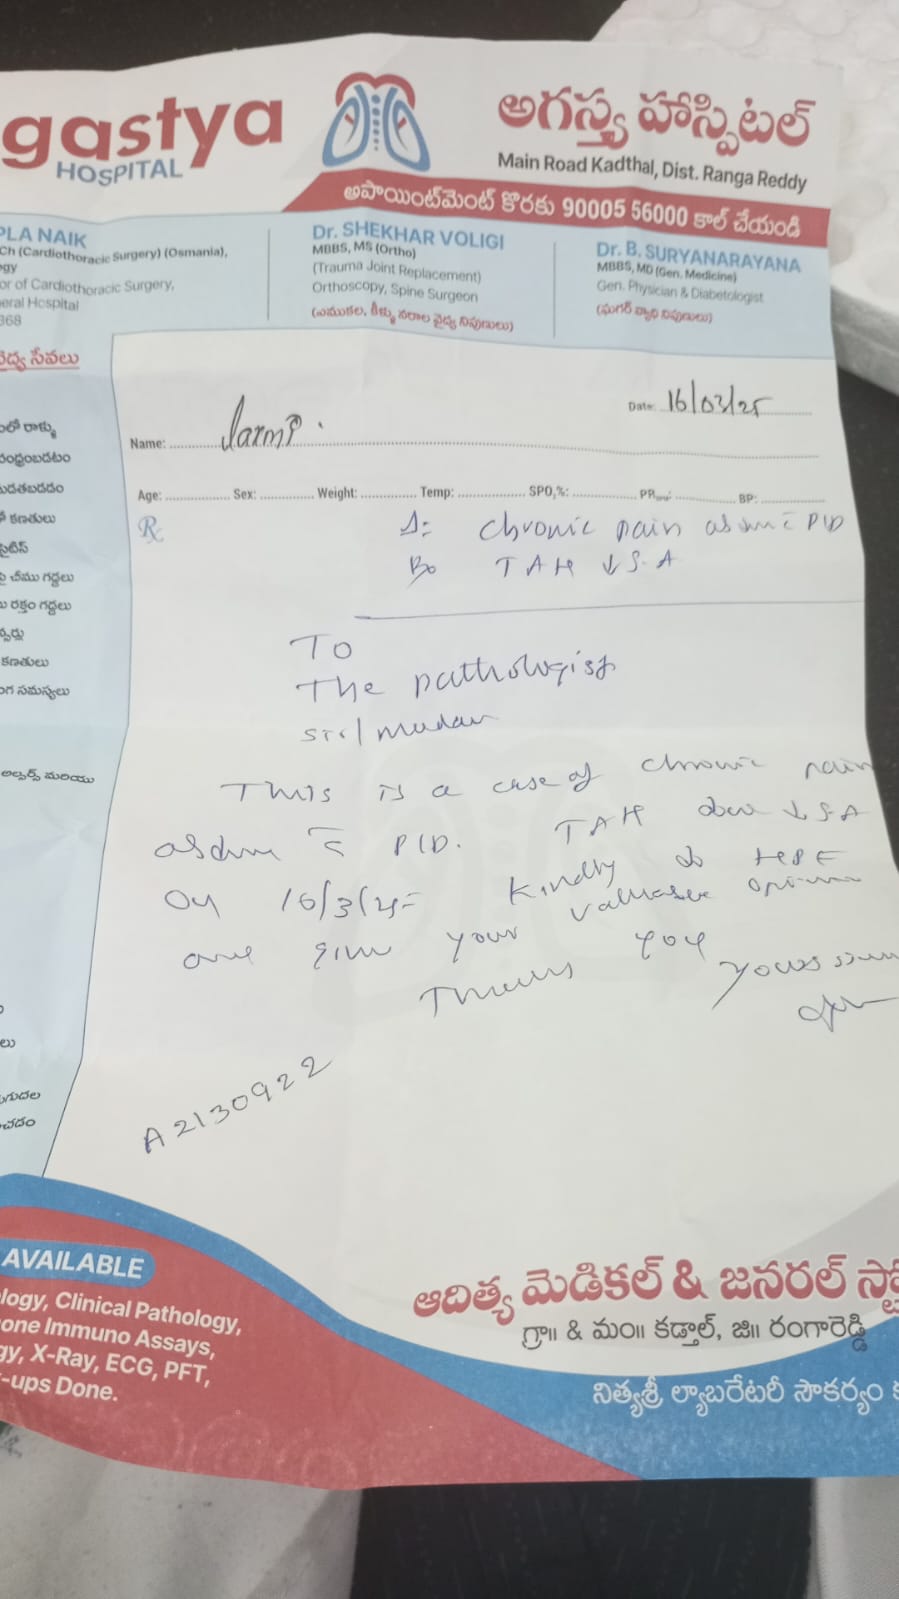 gastya
HOSPITAL
అగస్త్య హాస్పిటల్
Main Road Kadthal, Dist. Ranga Reddy
అపాయింట్‌మెంట్ కొరకు 90005 56000 కాల్ చేయండి
PLA NAIK
Ch (Cardiothoracic Surgery) (Osmania),
gy
or of Cardiothoracic Surgery,
eral Hospital
368
Dr. SHEKHAR VOLIGI
MBBS, MS (Ortho)
(Trauma Joint Replacement)
Orthoscopy, Spine Surgeon
(ఎముకల, కీళ్ళు నరాల వైద్య నిపుణులు)
Dr. B. SURYANARAYANA
MBBS, MD (Gen. Medicine)
Gen. Physician & Diabetologist
(షుగర్ వ్యాధి నిపుణులు)
వైద్య సేవలు
లో రాళ్ళు
కణతులు
చీము గడ్డలు
రక్తం గడ్డలు
కణతులు
సమస్యలు
అల్సర్స్ మరియు
Date: 16/03/25
Name:
Age: Sex: Weight: Temp: SPO2%: PR BP:
Rx
chronic pain PID
TAH ↓ S.A
To
The pathologist
Sir/madam
This is a case of chronic pain
PID. TAH ↓ S.A
On 16/3/25 Kindly do HPE
and give your valuable opinion
Thank you
Yours
A2130922
AVAILABLE
logy, Clinical Pathology,
one Immuno Assays,
gy, X-Ray, ECG, PFT,
-ups Done.
ఆదిత్య మెడికల్ & జనరల్ స్టో
గ్రా॥ & మం॥ కడ్తాల్, జి॥ రంగారెడ్డి
నిత్యశ్రీ ల్యాబరేటరీ సౌకర్యం